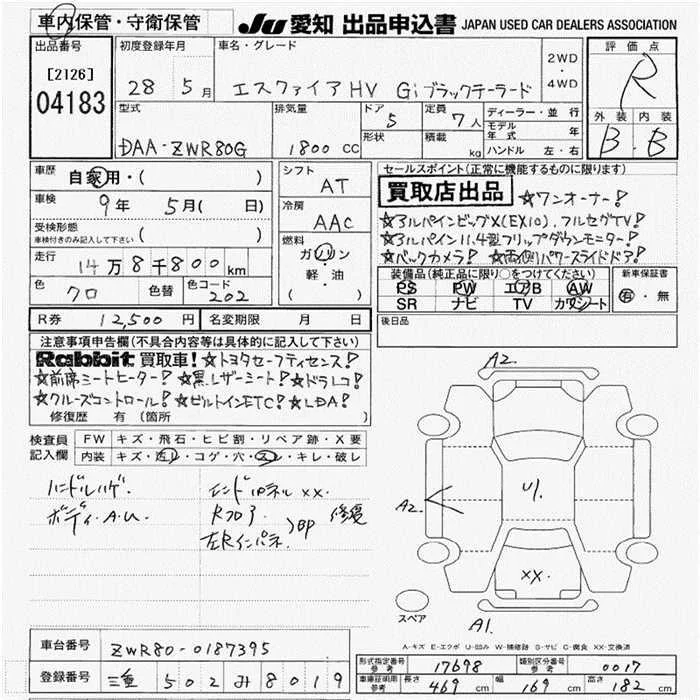 車内保管・守衛保管
JU 愛知 出品申込書 JAPAN USED CAR DEALERS ASSOCIATION
出品番号
[2126]
04183
初度登録年月
28 年 5 月
車名・グレード
エスクァイア HV Gi ブラックテーラード
2WD
・
4WD
評価点
R
外装 内装
B B
型式
DAA-ZWR80G
排気量
1800 cc
ドア
5
形状
定員
7 人
積載
kg
ディーラー・並行
モデル年式 年
ハンドル 左・右
車歴
自家用・( )
車検
9年 5月( 日)
受検形態
車検付きのみ記入して下さい ( )
走行
14万8千800 km
色
クロ
色替
色コード
202
シフト
AT
冷房
AAC
燃料
ガソリン
軽・油
( )
セールスポイント(正常に機能するものに限ります)
買取店出品 ☆ワンオーナー!
☆アルパインビッグX(EX10)、フルセグTV!
☆アルパイン11.4型フリップダウンモニター!
☆バックカメラ! ☆両側パワースライドドア!
装備品(純正品に限り○をつけてください)
PS PW エアB AW
SR ナビ TV カワシート
新車保証書
有・無
R券 12,500 円
名変期限 月 日
後日品
注意事項申告欄(不具合内容等は具体的に記入して下さい)
Rabbit 買取車! ☆トヨタセーフティセンス!
☆前席シートヒーター! ☆黒レザーシート! ☆ドラレコ!
☆クルーズコントロール! ☆ビルトインETC! ☆LDA!
修復歴 有 (箇所 )
検査員記入欄
FW キズ・飛石・ヒビ割・リペア跡・X要
内装 キズ・汚レ・コゲ・穴・スレ・キレ・破レ
ハンドルハゲ
ボディ・A.U
インドパネル XX.
Rフロア
左Rインパネ
BP 修復
A2
A2
U1.
XX.
A1.
スペア
A-キズ E-エクボ U-凹み W-補修跡 S-サビ C-腐食 XX-交換済
車台番号 ZWR80-0187395
登録番号 三重 502 み 8019
形式指定番号 参考 17698
類別区分番号 参考 0017
車庫証明用 参考 長さ 469 cm 幅 169 cm 高さ 182 cm